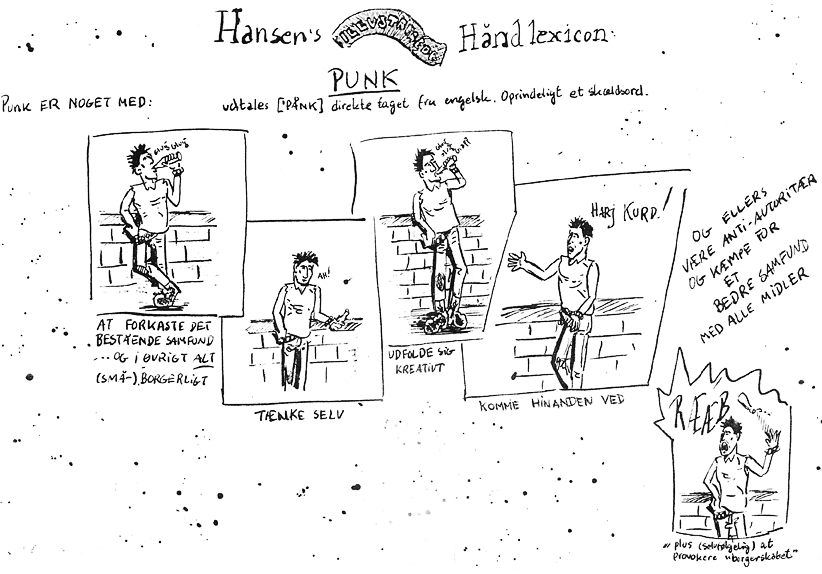 Hansen's ILLUSTREREDE Håndlexicon:
PUNK
PUNK ER NOGET MED:
udtales ['PÅNK] direkte taget fra engelsk. Oprindeligt et skældsord.
GLUG GLUG
AT FORKASTE DET
BESTÅENDE SAMFUND
...OG I ØVRIGT ALT
(SMÅ-)BORGERLIGT
AH!
TÆNKE SELV
UDFOLDE SIG
KREATIVT
HARJ KURD!
KOMME HINANDEN VED
OG ELLERS
VÆRE ANTI-AUTORITÆR
OG KÆMPE FOR
ET
BEDRE SAMFUND
MED ALLE MIDLER
RÆÆB
" plus (selvfølgelig) at
provokere "borgerskabet"